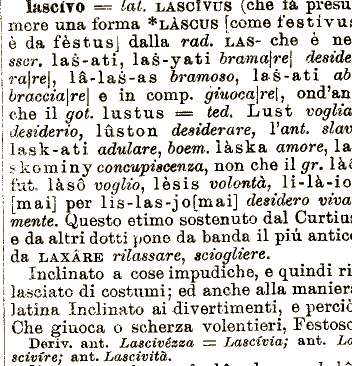 lascívo = lat. LASCÍVUS (che fa presu
mere una forma *LÀSCUS [come festívus
è da fèstus] dalla rad. LAS- che è ne
sscr. laš-ati, laš-yati brama|re| deside
ra|re|, lâ-laš-as bramoso, laš-ati ab
braccia|re| e in comp. giuoca|re|, ond'an
che il got. lustus = ted. Lust voglia
desiderio, lûston desiderare, l'ant. slav
lask-ati adulare, boem. làska amore, la
skominy concupiscenza, non che il gr. làô
fut. làsô voglio, lèsis volontà, li-là-io
[mai] per lis-las-jo[mai] desidero viva
mente. Questo etimo sostenuto dal Curtius
e da altri dotti pone da banda il piú antico
da LAXÀRE rilassare, sciogliere.
Inclinato a cose impudiche, e quindi ri
lasciato di costumi; ed anche alla maniera
latina Inclinato ai divertimenti, e perciò
Che giuoca o scherza volentieri, Festoso
Deriv. ant. Lascivézza = Lascívia; ant. La
scivíre; ant. Lascività.